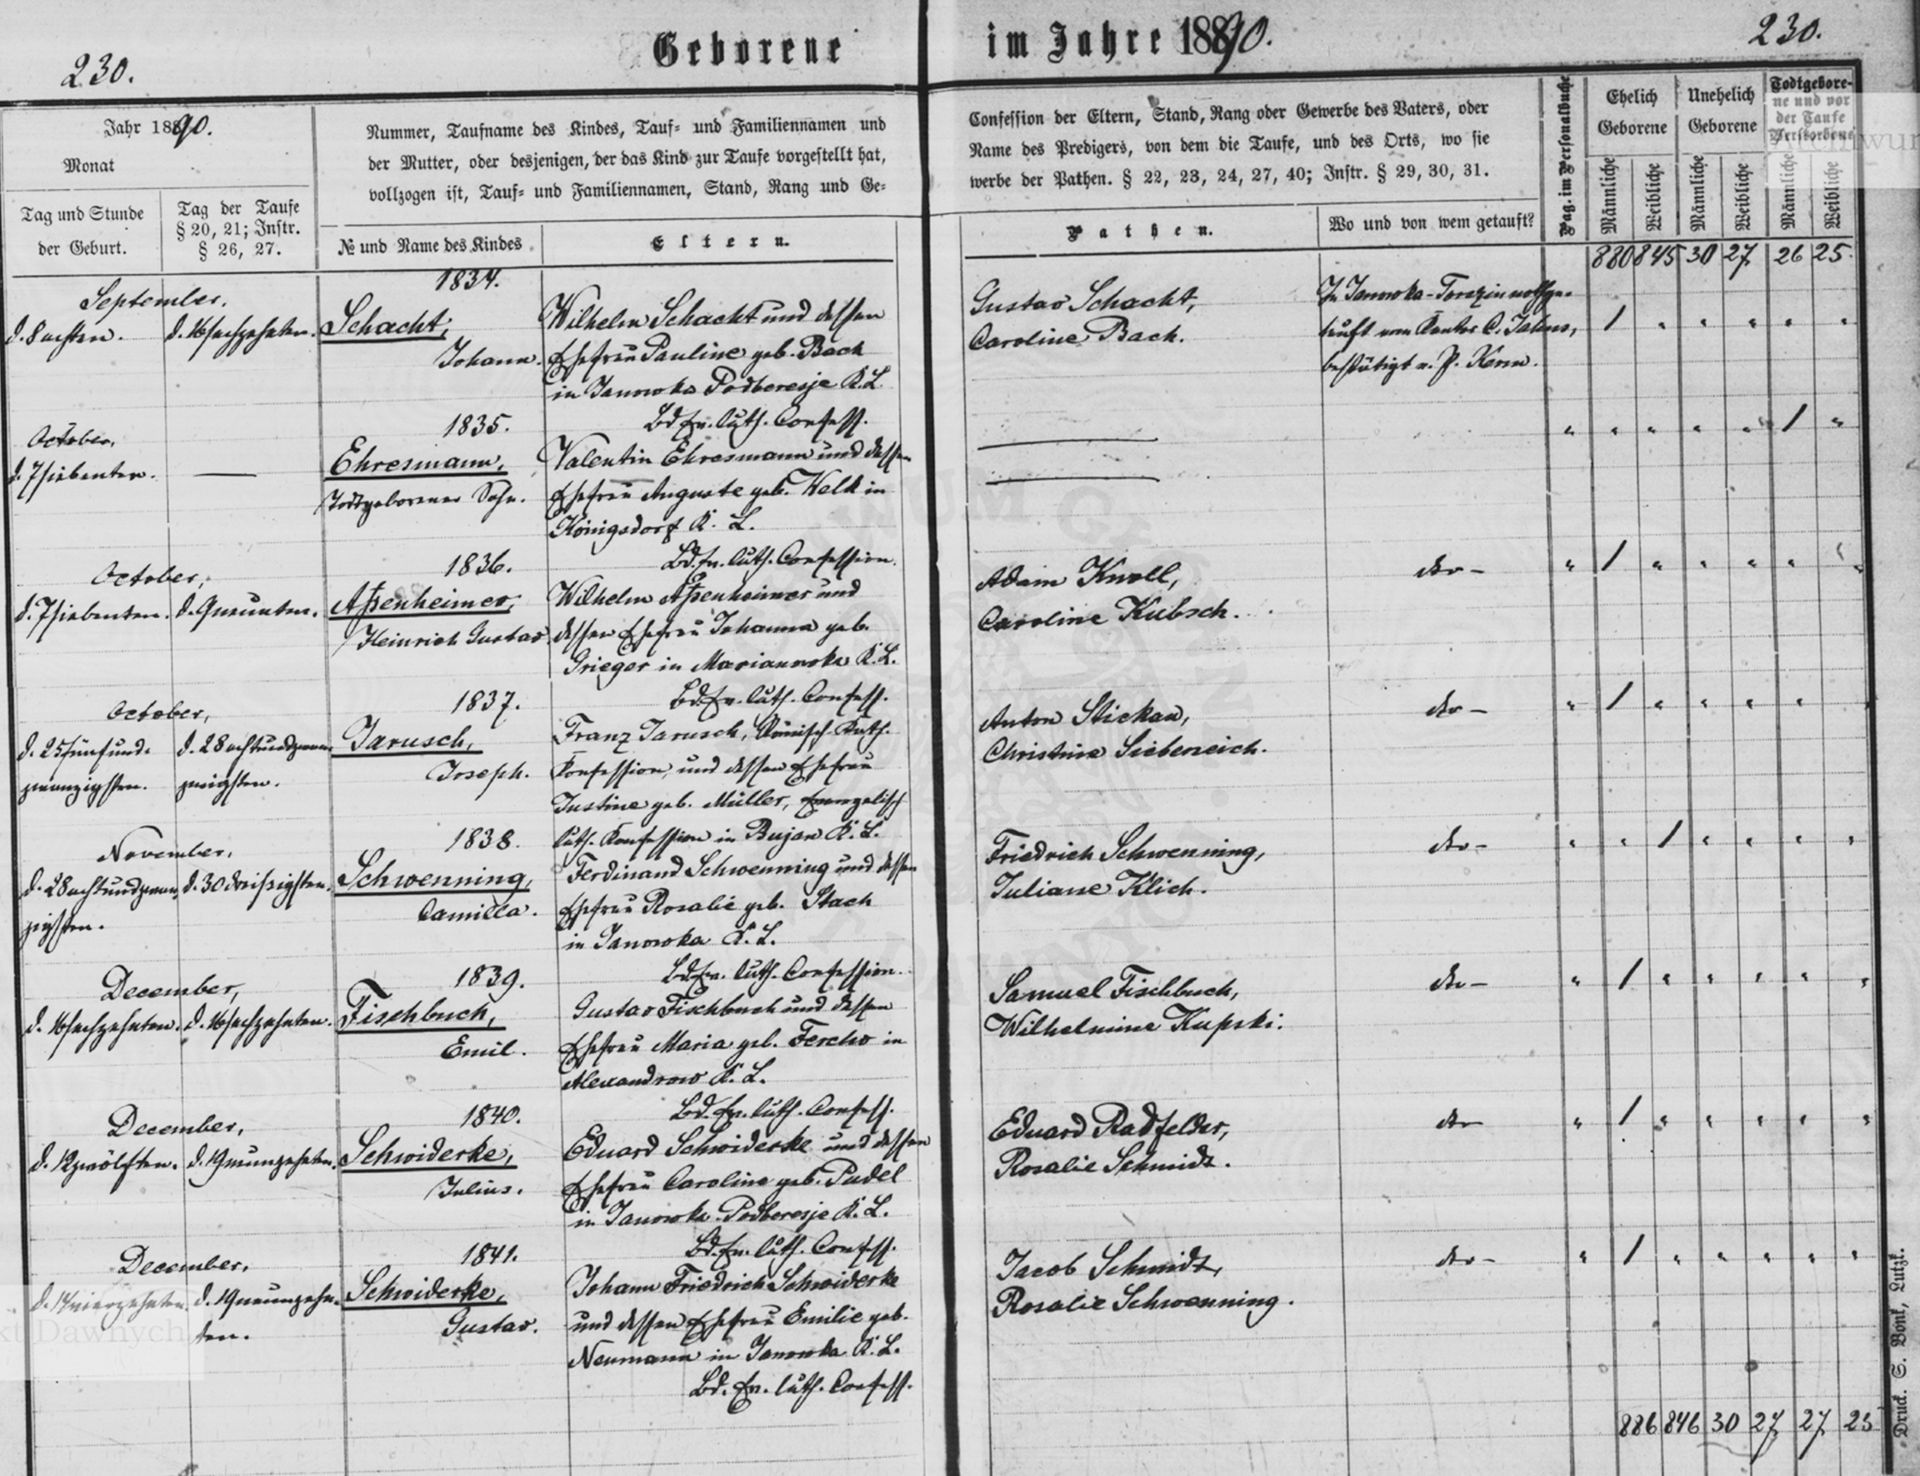 230.
Geborene im Jahre 1890.
230.
Jahr 1890.
Monat
Tag und Stunde
der Geburt.
Tag der Taufe
§ 20, 21; Instr.
§ 26, 27.
Nummer, Taufname des Kindes, Tauf- und Familiennamen und
der Mutter, oder desjenigen, der das Kind zur Taufe vorgestellt hat,
vollzogen ist, Tauf- und Familiennamen, Stand, Rang und Ge-
№ und Name des Kindes
Eltern.
Confession der Eltern, Stand, Rang oder Gewerbe des Vaters, oder
Name des Predigers, von dem die Taufe, und des Orts, wo sie
werbe der Pathen. § 22, 23, 24, 27, 40; Instr. § 29, 30, 31.
Pathen.
Wo und von wem getauft?
Pag. im Personalbuche
Ehelich
Geborene
Unehelich
Geborene
Todtgebore-
ne und vor
der Taufe
Verstorbene
Männliche
Weibliche
Männliche
Weibliche
Männliche
Weibliche
880 845 30 27 26 25
September,
d. 8 achten.
d. 16 sechzehnten.
1834.
Schacht,
Johann.
Wilhelm Schacht und dessen
Ehefrau Pauline geb. Bach
in Janowka Podberesje K. L.
Bd. Ev. luth. Confess.
Gustav Schacht,
Caroline Bach.
In Janowka-Torczin nothge-
tauft vom Kantor C. Jahns,
bestätigt v. P. Kern.
1
October,
d. 7 siebenten.
1835.
Ehresmann,
Todtgeborener Sohn.
Valentin Ehresmann und dessen
Ehefrau Auguste geb. Welk in
Königsdorf K. L.
Bd. Ev. luth. Confession.
1
October,
d. 7 siebenten.
d. 9 neunten.
1836.
Aßenheimer,
Heinrich Gustav
Wilhelm Aßenheimer und
dessen Ehefrau Johanna geb.
Grieger in Marianowka K. L.
Bd. Ev. luth. Confess.
Adam Knoll,
Caroline Kubsch.
dto-
1
October,
d. 25 fünfund-
zwanzigsten.
d. 28 achtundzwan-
zigsten.
1837.
Jarusch,
Joseph.
Franz Jarusch, Römisch-Kath.
Konfession, und dessen Ehefrau
Justine geb. Müller, Evangelisch
luth. Konfession in Bujan K. L.
Anton Stickan,
Christine Siebeneich.
dto-
1
November,
d. 28 achtundzwan-
zigsten.
d. 30 dreißigsten.
1838.
Schwenning,
Camilla.
Ferdinand Schwenning und dessen
Ehefrau Rosalie geb. Stach
in Janowka K. L.
Bd. Ev. luth. Confession.
Friedrich Schwenning,
Juliane Klich.
dto-
1
December,
d. 16 sechzehnten.
d. 16 sechzehnten.
1839.
Fischbuch,
Emil.
Gustav Fischbuch und dessen
Ehefrau Maria geb. Fercho in
Alexandrow K. L.
Bd. Ev. luth. Confess.
Samuel Fischbuch,
Wilhelmine Kupski.
dto-
1
December,
d. 12 zwölften.
d. 19 neunzehnten.
1840.
Schwiderke,
Julius.
Eduard Schwiderke und dessen
Ehefrau Caroline geb. Pudel
in Janowka-Podberesje K. L.
Bd. Ev. luth. Confess.
Eduard Radfelder,
Rosalie Schmidt.
dto
1
December,
d. 14 vierzehnten.
d. 19 neunzehn-
ten.
1841.
Schwiderke,
Gustav.
Johann Friedrich Schwiderke
und dessen Ehefrau Emilie geb.
Neumann in Janowka K. L.
Bd. Ev. luth. Confess.
Jacob Schmidt,
Rosalie Schwenning.
dto-
1
886 846 30 27 27 25
Druck. S. Bonk, Lutzk.